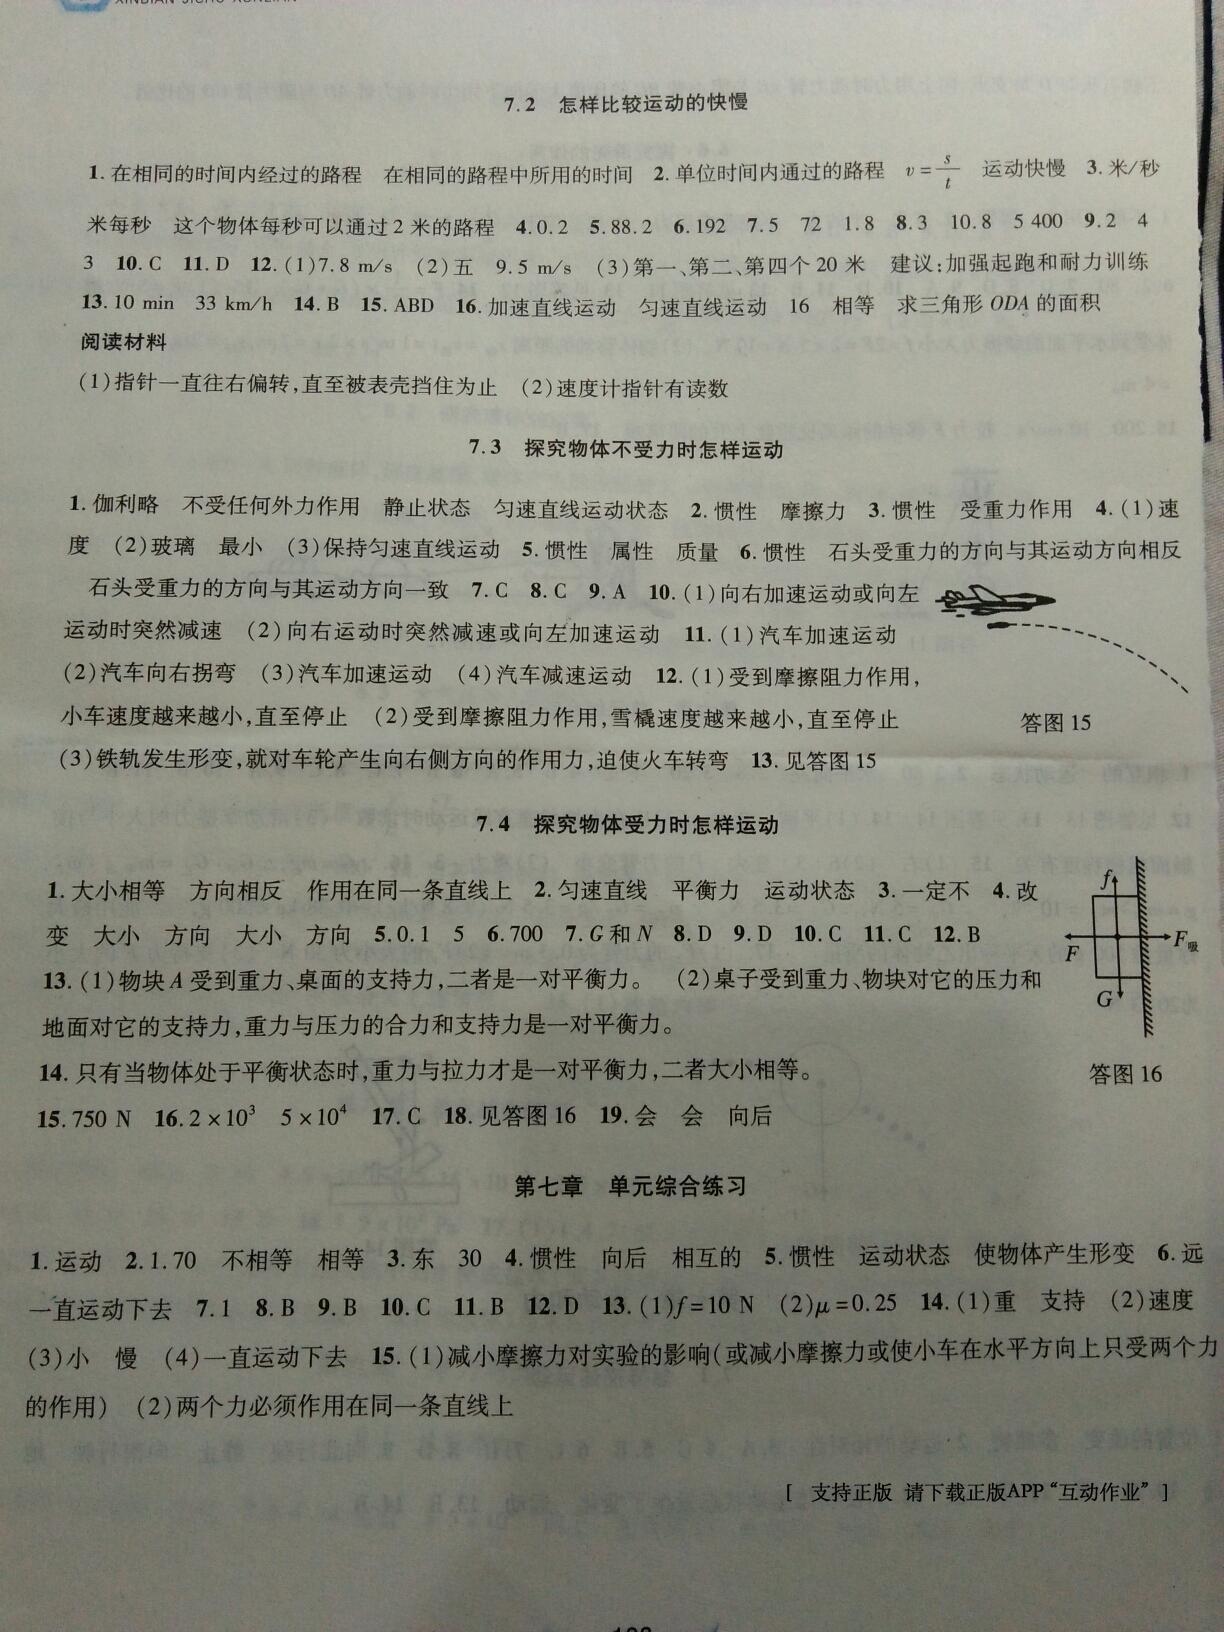 XINBIAN JICHU XUNLIAN
7.2 怎样比较运动的快慢
1.在相同的时间内经过的路程 在相同的路程中所用的时间 2.单位时间内通过的路程 v=s/t 运动快慢 3.米/秒
米每秒 这个物体每秒可以通过2米的路程 4.0.2 5.88.2 6.192 7.5 72 1.8 8.3 10.8 5 400 9.2 4
3 10.C 11.D 12.(1)7.8 m/s (2)五 9.5 m/s (3)第一、第二、第四个20米 建议:加强起跑和耐力训练
13.10 min 33 km/h 14.B 15.ABD 16.加速直线运动 匀速直线运动 16 相等 求三角形ODA的面积
阅读材料
(1)指针一直往右偏转,直至被表壳挡住为止 (2)速度计指针有读数
7.3 探究物体不受力时怎样运动
1.伽利略 不受任何外力作用 静止状态 匀速直线运动状态 2.惯性 摩擦力 3.惯性 受重力作用 4.(1)速
度 (2)玻璃 最小 (3)保持匀速直线运动 5.惯性 属性 质量 6.惯性 石头受重力的方向与其运动方向相反
石头受重力的方向与其运动方向一致 7.C 8.C 9.A 10.(1)向右加速运动或向左
运动时突然减速 (2)向右运动时突然减速或向左加速运动 11.(1)汽车加速运动
(2)汽车向右拐弯 (3)汽车加速运动 (4)汽车减速运动 12.(1)受到摩擦阻力作用,
小车速度越来越小,直至停止 (2)受到摩擦阻力作用,雪橇速度越来越小,直至停止
答图15
(3)铁轨发生形变,就对车轮产生向右侧方向的作用力,迫使火车转弯 13.见答图15
7.4 探究物体受力时怎样运动
1.大小相等 方向相反 作用在同一条直线上 2.匀速直线 平衡力 运动状态 3.一定不 4.改
变 大小 方向 大小 方向 5.0.1 5 6.700 7.G和N 8.D 9.D 10.C 11.C 12.B
13.(1)物块A受到重力、桌面的支持力,二者是一对平衡力。 (2)桌子受到重力、物块对它的压力和
地面对它的支持力,重力与压力的合力和支持力是一对平衡力。
f
F
F吸
G
答图16
14.只有当物体处于平衡状态时,重力与拉力才是一对平衡力,二者大小相等。
15.750 N 16.2×10³ 5×10⁴ 17.C 18.见答图16 19.会 会 向后
第七章 单元综合练习
1.运动 2.1.70 不相等 相等 3.东 30 4.惯性 向后 相互的 5.惯性 运动状态 使物体产生形变 6.远
一直运动下去 7.1 8.B 9.B 10.C 11.B 12.D 13.(1)f=10 N (2)μ=0.25 14.(1)重 支持 (2)速度
(3)小 慢 (4)一直运动下去 15.(1)减小摩擦力对实验的影响(或减小摩擦力或使小车在水平方向上只受两个力
的作用) (2)两个力必须作用在同一条直线上
[ 支持正版 请下载正版APP“互动作业” ]